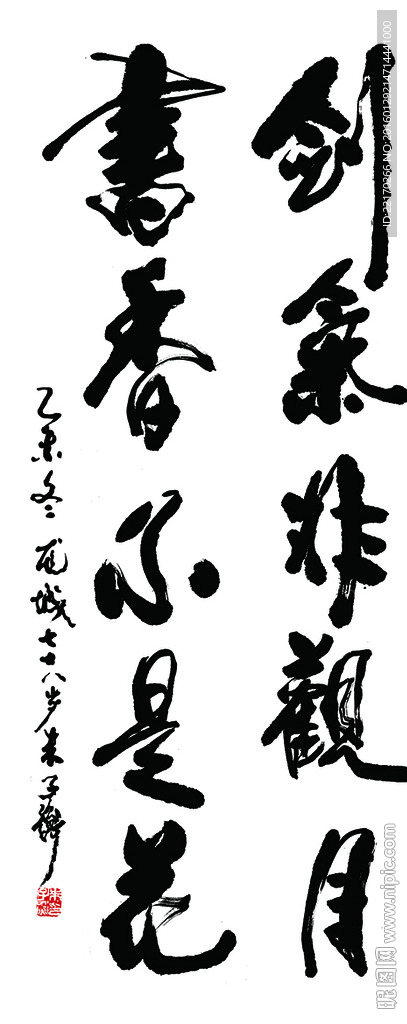 劍氣非觀月
書香不是花
乙亥冬 龍城七十八岁朱子鶴
ID:22170266 NO:20160129221471444​1000
昵图网 www.nipic.com